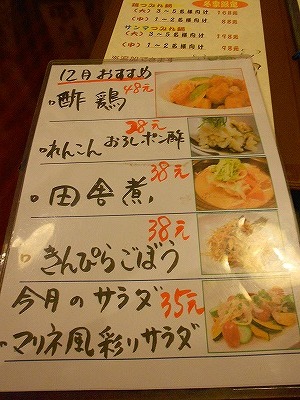 鶏つみれ鍋
(大) 3～5名様向け 168元
(中) 1～2名様向け 88元
サンマつみれ鍋
(大) 3～5名様向け 148元
(中) 1～2名様向け 78元
12月おすすめ
酢鶏 48元
れんこんおろしポン酢 28元
田舎煮 38元
きんぴらごぼう 38元
今月のサラダ 35元
マリネ風彩りサラダ